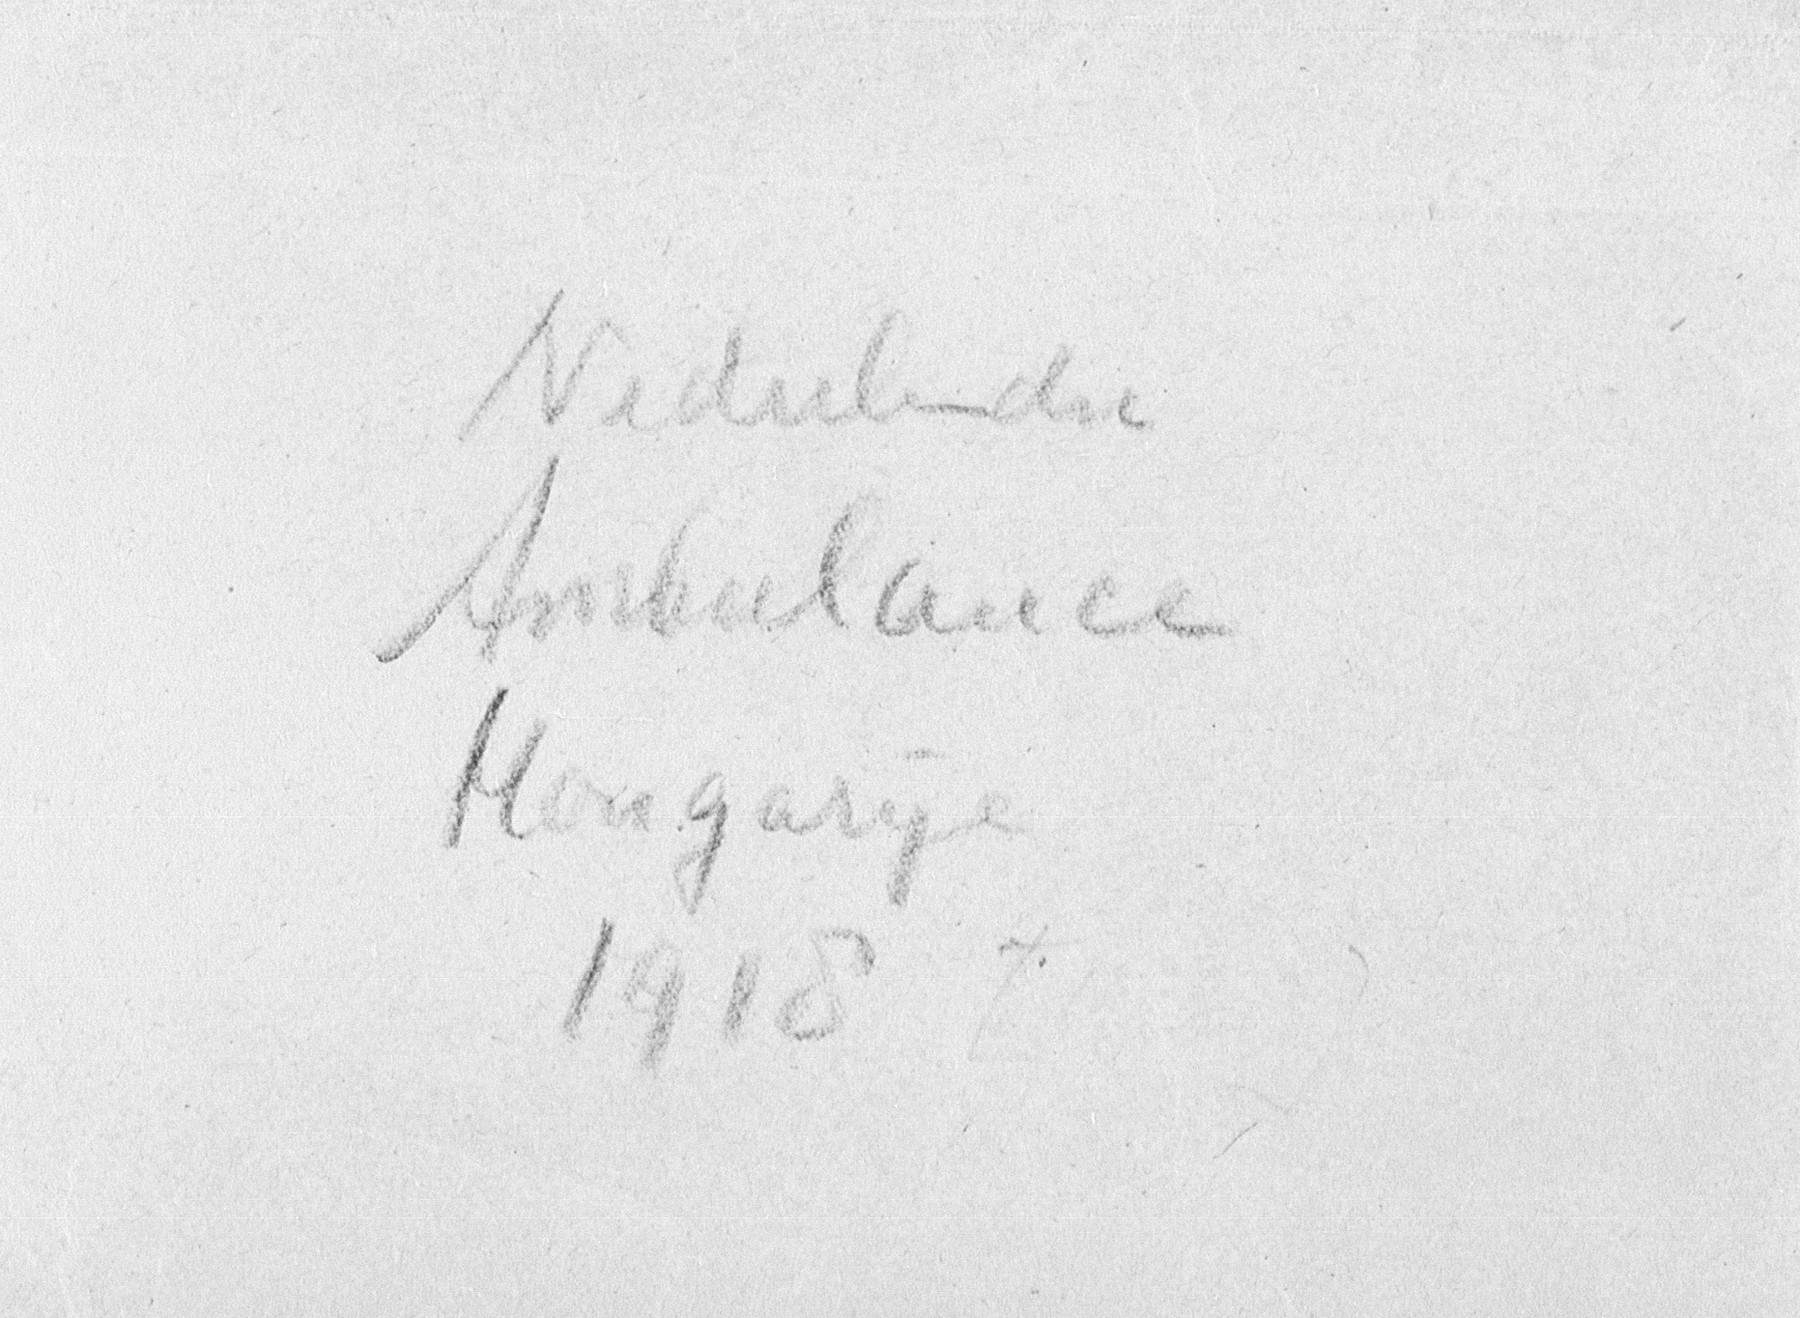 Nederlandse
Ambulance
Hongarije
1918